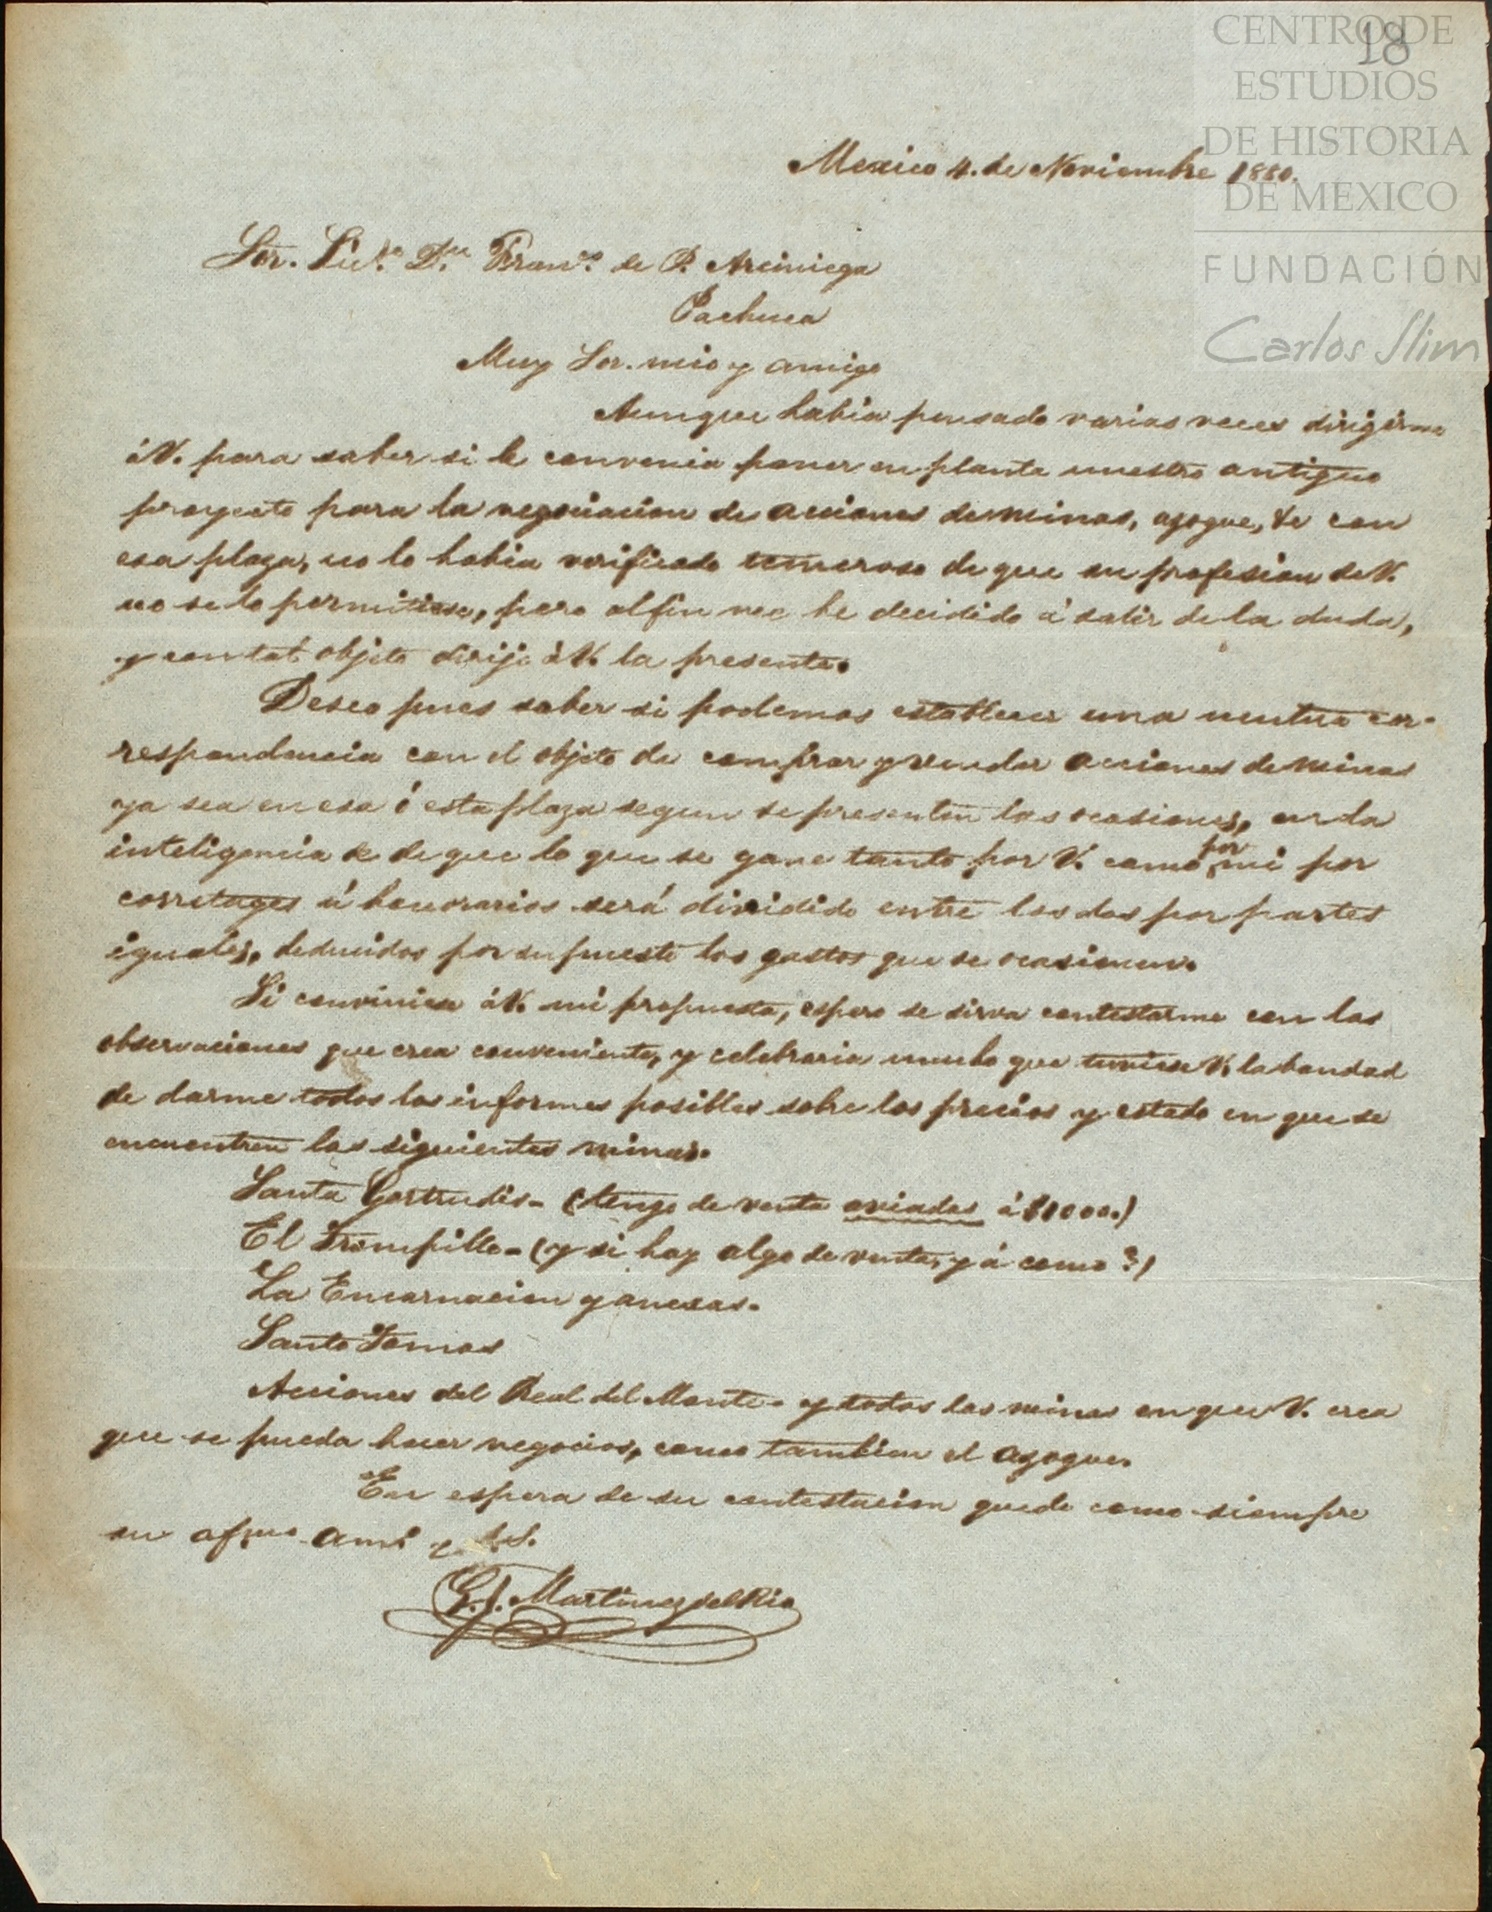 18
CENTRO DE
ESTUDIOS
DE HISTORIA
DE MÉXICO
FUNDACIÓN
Carlos Slim
Mexico 4. de Noviembre 1880.
Sor. Licdo. Dn. Franco. de P. Arciniega
Pachuca
Muy Sor. mio y amigo
Aunque habia pensado varias veces dirigirme
á V. para saber si le convenia poner en planta nuestro antiguo
proyecto para la negociacion de acciones de minas, azogue, &c con
esa plaza, no lo habia verificado temeroso de que su profesion de V.
no se lo permitiese, pero al fin me he decidido á salir de la duda,
y con tal objeto dirijo á V. la presente.
Deseo pues saber si podemos establecer una mutua cor-
respondencia con el objeto de comprar y vender acciones de minas
ya sea en esa ó esta plaza segun se presenten las ocasiones, en la
inteligencia de que lo que se gane tanto por V. como por mi por
corretages ú honorarios será dividido entre los dos por partes
iguales, deducidos por supuesto los gastos que se ocasionen.
Si conviniese á V. mi propuesta, espero se sirva contestarme con las
observaciones que crea conveniente, y celebraria mucho que tuviese V. la bondad
de darme todos los informes posibles sobre los precios y estado en que se
encuentren las siguientes minas.
Santa Gertrudis - (tengo de venta aviadas á $1000.)
El Trompillo - (y si hay algo de venta, y á como?)
La Encarnacion y anexas.
Santo Tomas
Acciones del Real del Monte - y todas las minas en que V. crea
que se pueda hacer negocios, como tambien el azogue.
En espera de su contestacion quedo como siempre
su afmo. amo. y S.S.
G. J. Martinez del Rio